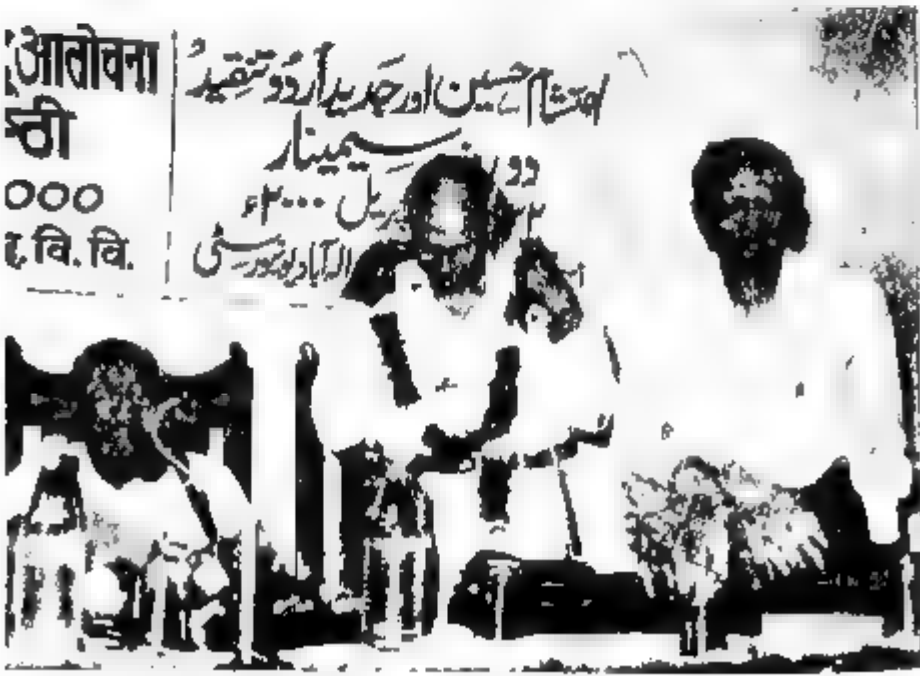 आलोचना
ष्ठी
०००
वि. वि.
احتشام حسین اور جدید اردو تنقید
دو
سیمینار
اپریل ۲۰۰۰ء
الہ آباد یونیورسٹی